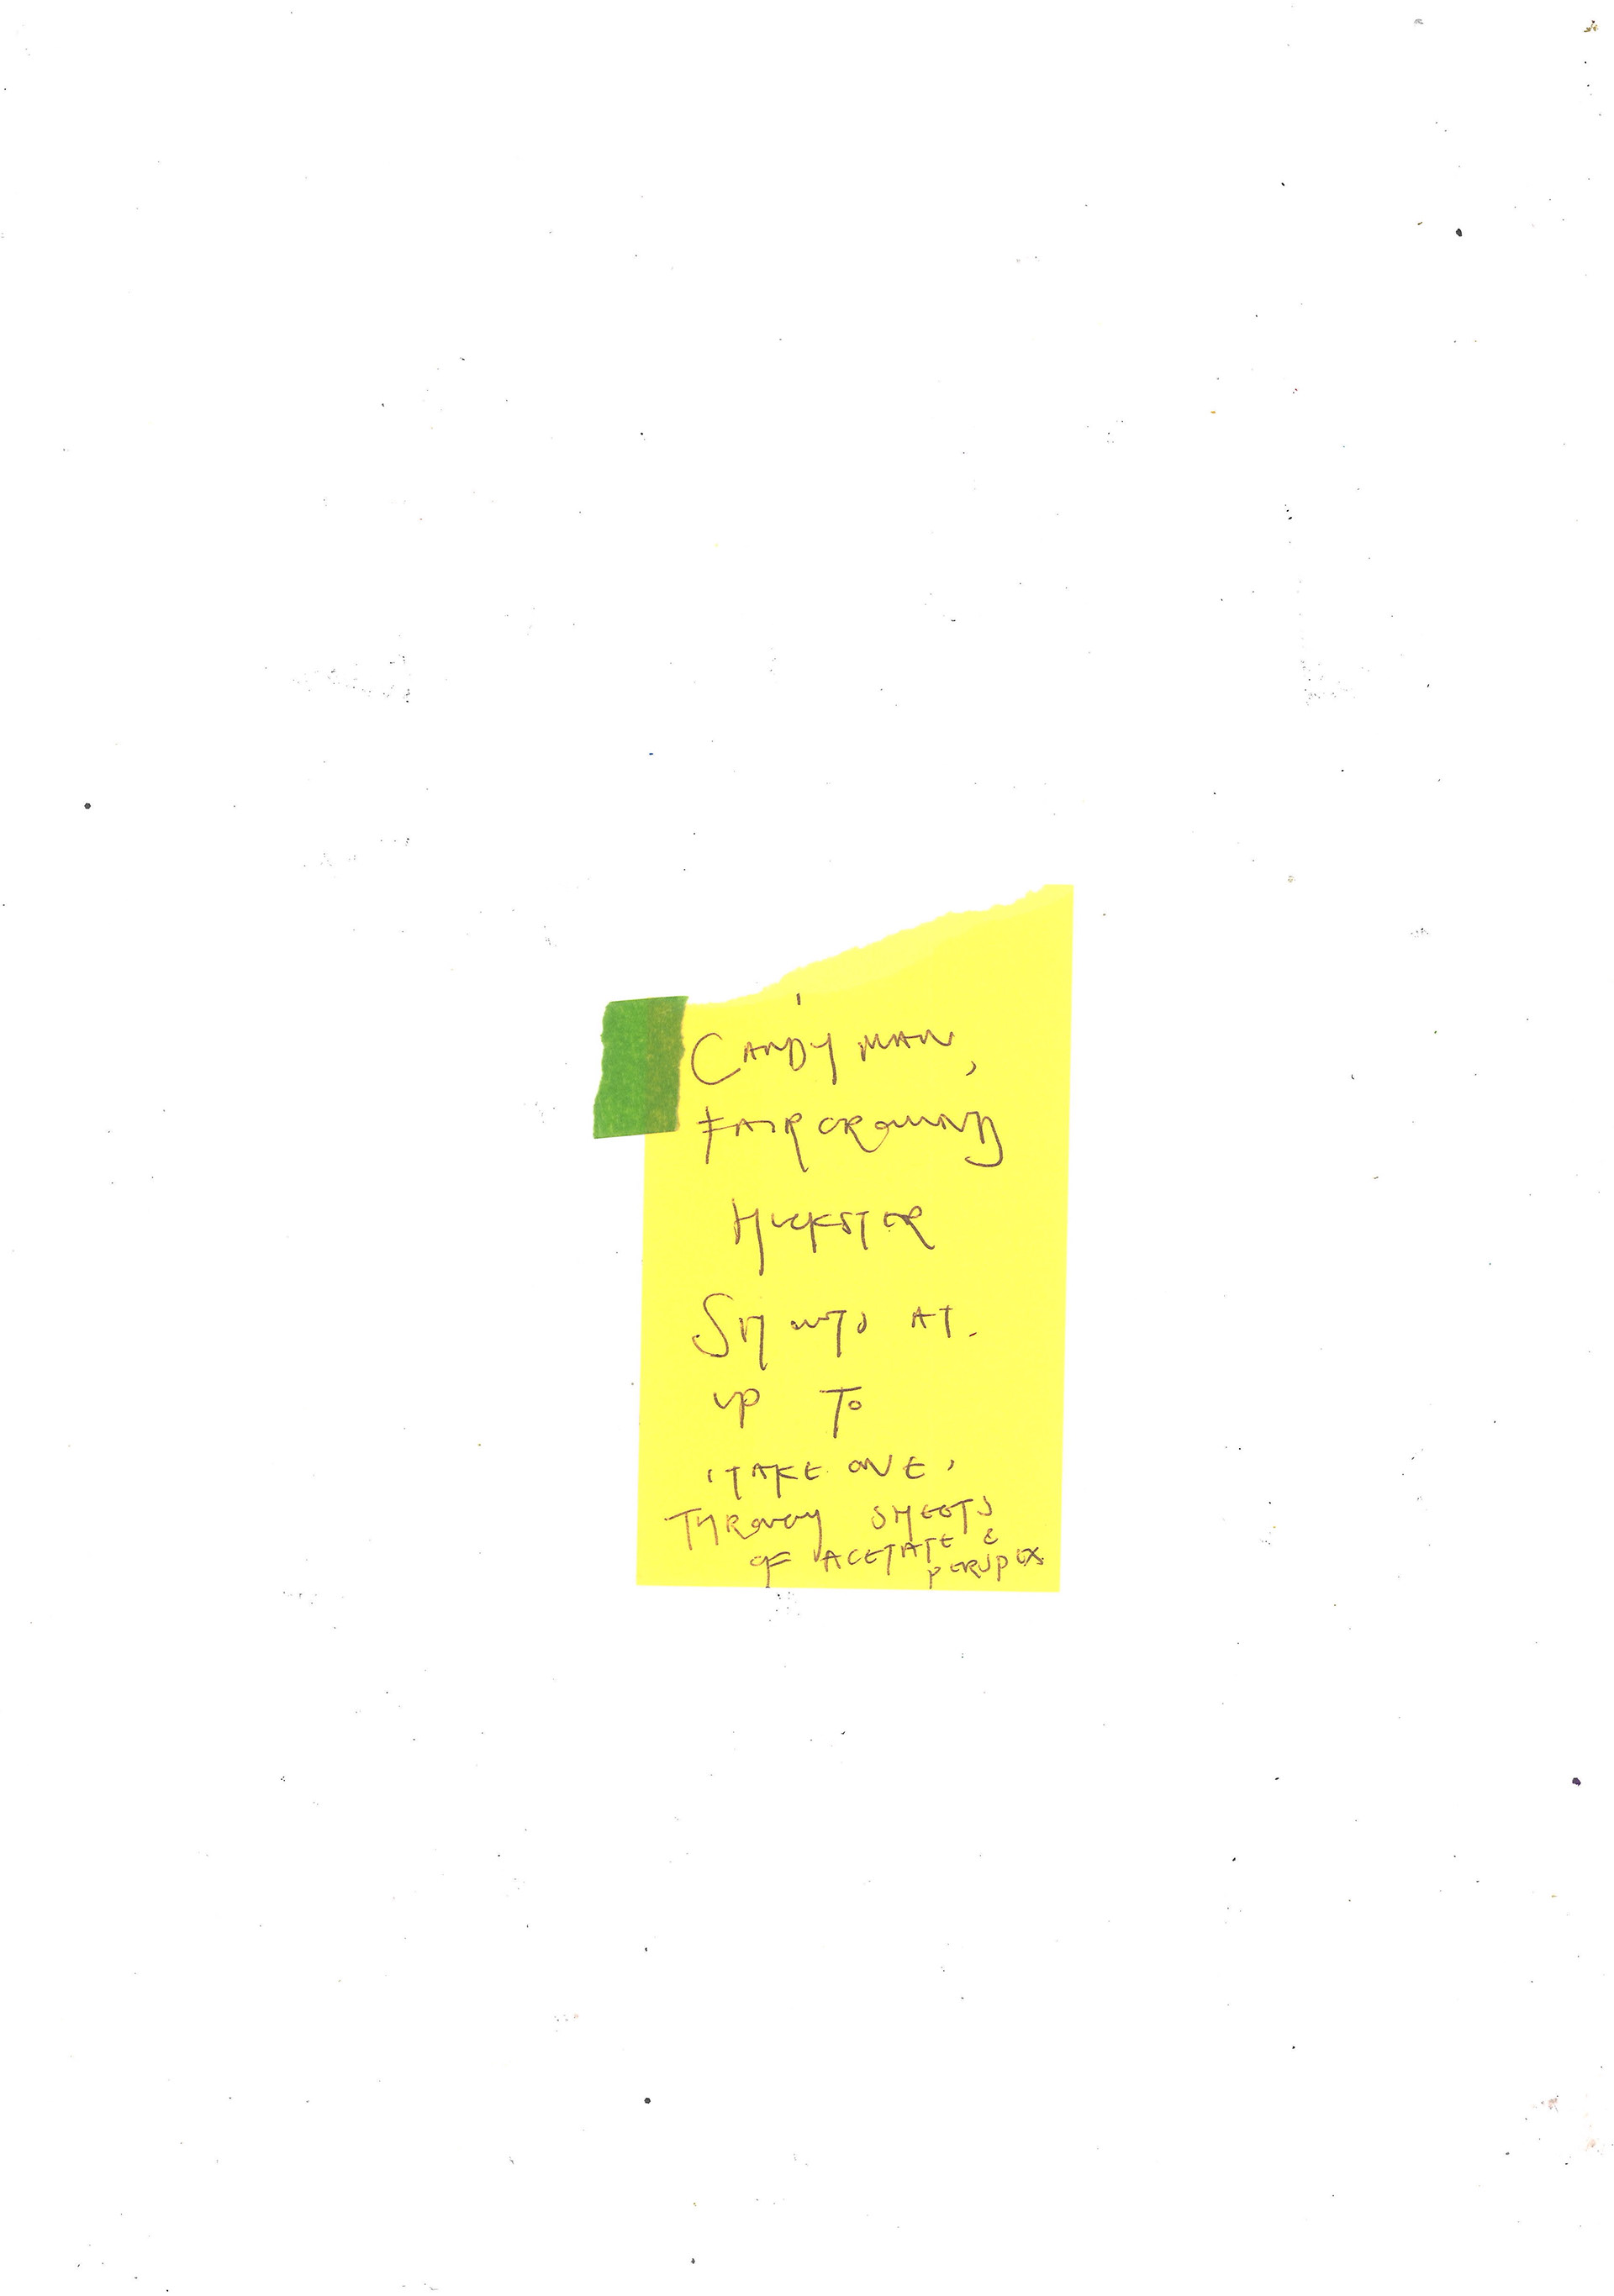 CANDY MAN,
FAIRGROUND
HUCKSTER
SHOUTS AT.
UP TO
'TAKE ONE'
THROUGH SHEETS
OF ACETATE &
PERSPEX